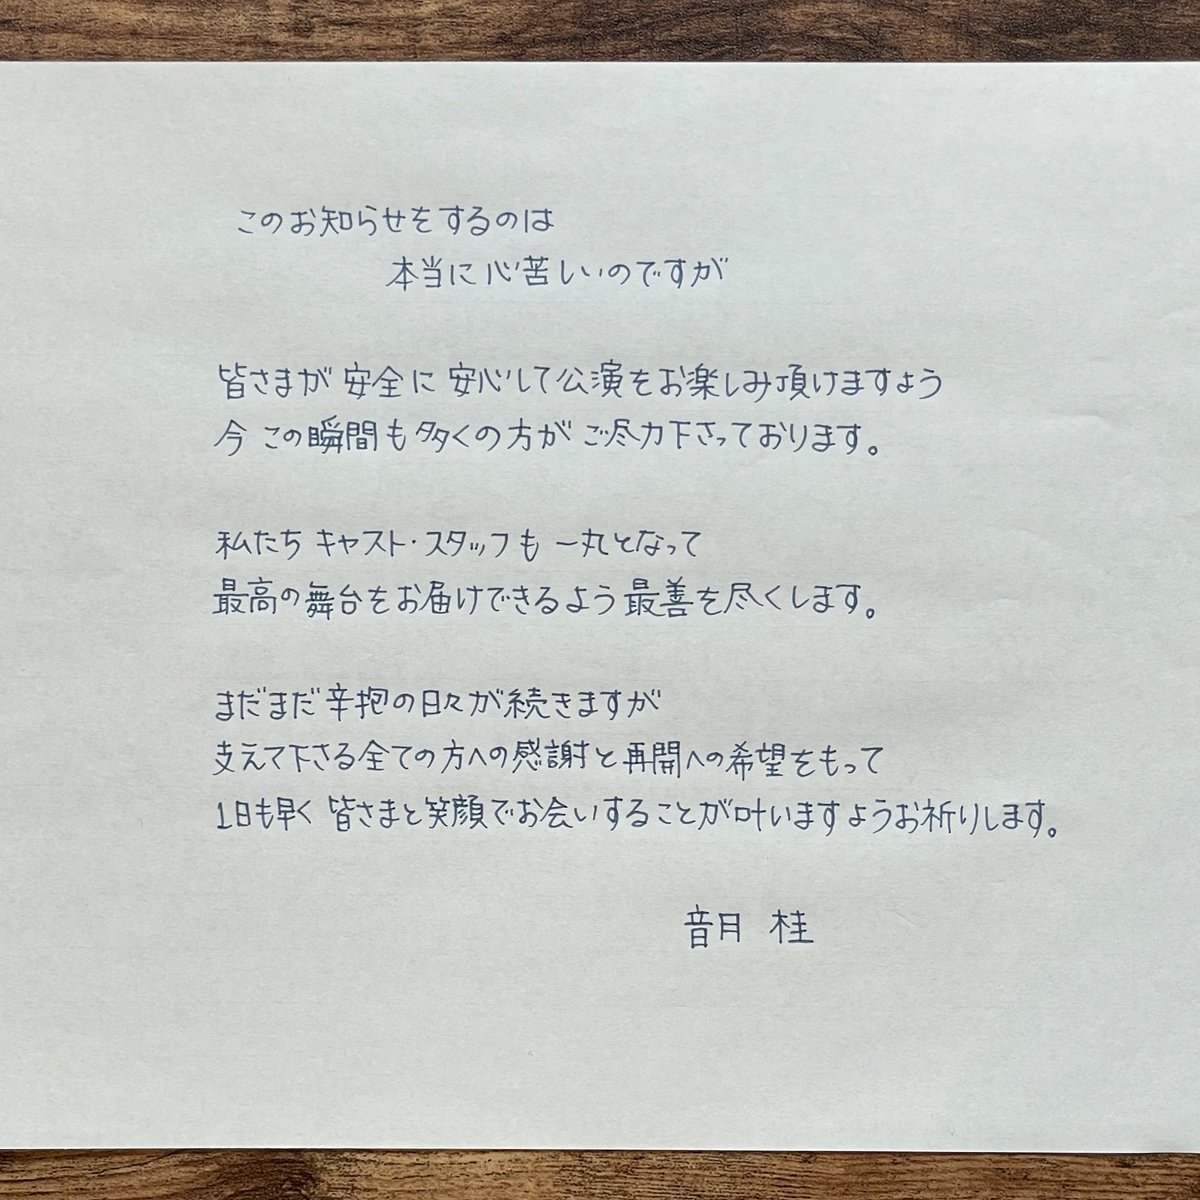 このお知らせをするのは
本当に心苦しいのですが
皆さまが 安全に 安心して公演をお楽しみ頂けますよう
今 この瞬間も多くの方が ご尽力下さっております。
私たち キャスト・スタッフも 一丸となって
最高の舞台をお届けできるよう 最善を尽くします。
まだまだ辛抱の日々が続きますが
支えて下さる全ての方への感謝と再開への希望をもって
1日も早く 皆さまと笑顔でお会いすることが叶いますようお祈りします。
音月 桂